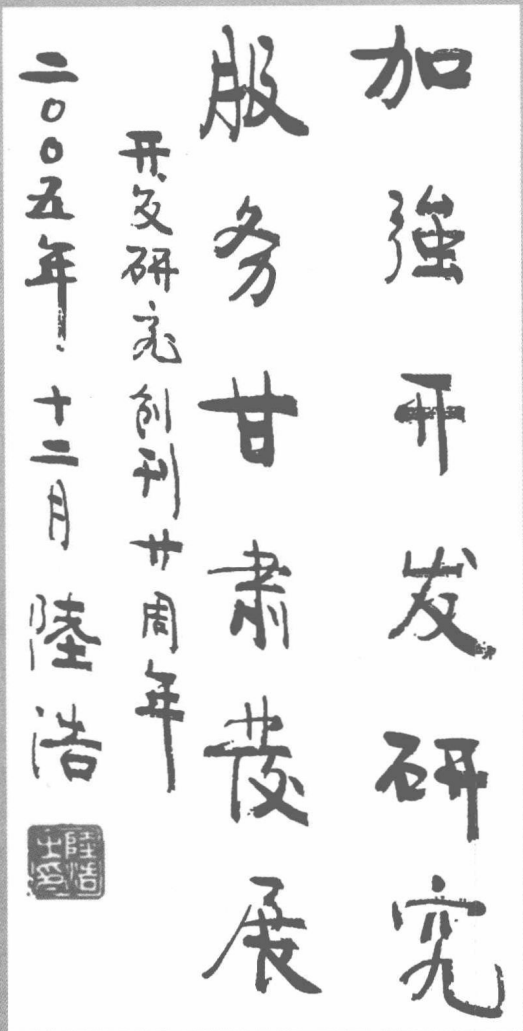 加強开发研究
服务甘肃發展
开发研究创刊廿周年
二〇〇五年十二月 陸浩
陸浩之印